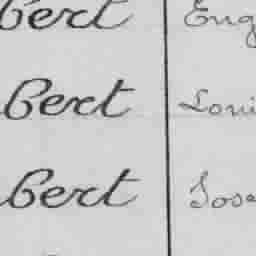 bert Eug
Bert Loui
Bert Jose